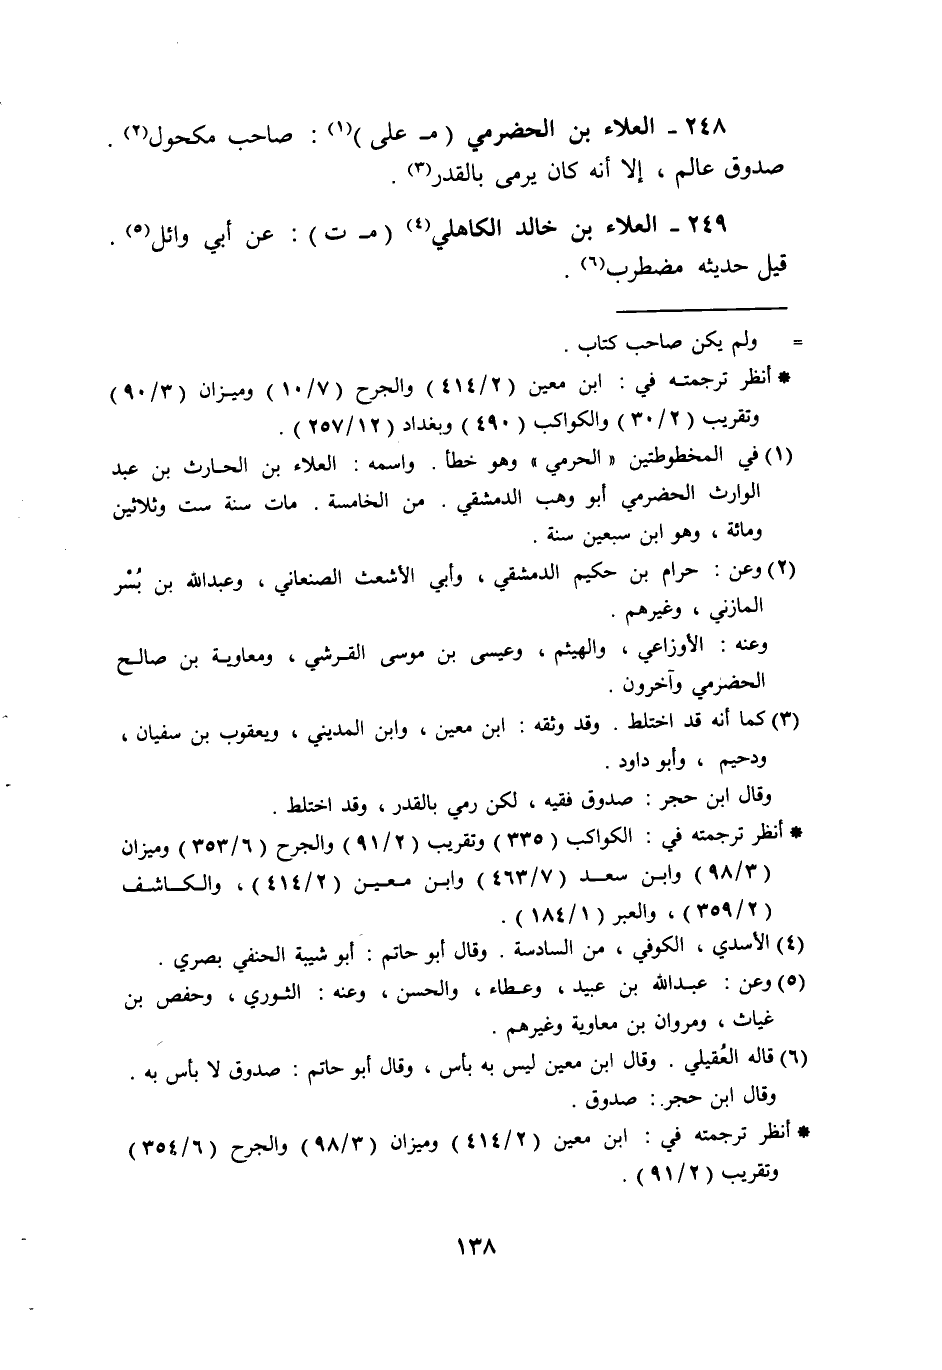 ٢٤٨ ـ العلاء بن الحضرمي ( مـ على )(١) : صاحب مكحول(٢) .
صدوق عالم ، إلا أنه كان يرمى بالقدر(٣) .
٢٤٩ ـ العلاء بن خالد الكاهلي(٤) ( مـ ت ) : عن أبي وائل(٥) .
قيل حديثه مضطرب(٦) .
= ولم يكن صاحب كتاب .
* أنظر ترجمته في : ابن معين ( ٤١٤/٢ ) والجرح ( ١٠/٧ ) وميزان ( ٩٠/٣ )
وتقريب ( ٣٠/٢ ) والكواكب ( ٤٩٠ ) وبغداد ( ٢٥٧/١٢ ) .
(١) في المخطوطتين « الحرمي » وهو خطأ . واسمه : العلاء بن الحارث بن عبد
الوارث الحضرمي أبو وهب الدمشقي . من الخامسة . مات سنة ست وثلاثين
ومائة ، وهو ابن سبعين سنة .
(٢) وعن : حرام بن حكيم الدمشقي ، وأبي الأشعث الصنعاني ، وعبدالله بن بُسْر
المازني ، وغيرهم .
وعنه : الأوزاعي ، والهيثم ، وعيسى بن موسى القرشي ، ومعاوية بن صالح
الحضرمي وآخرون .
(٣) كما أنه قد اختلط . وقد وثقه : ابن معين ، وابن المديني ، ويعقوب بن سفيان ،
ودحيم ، وأبو داود .
وقال ابن حجر : صدوق فقيه ، لكن رمي بالقدر ، وقد اختلط .
* أنظر ترجمته في : الكواكب ( ٣٣٥ ) وتقريب ( ٩١/٢ ) والجرح ( ٣٥٣/٦ ) وميزان
( ٩٨/٣ ) وابن سعد ( ٤٦٣/٧ ) وابن معين ( ٤١٤/٢ ) ، والكاشف
( ٣٥٩/٢ ) ، والعبر ( ١٨٤/١ ) .
(٤) الأسدي ، الكوفي ، من السادسة . وقال أبو حاتم : أبو شيبة الحنفي بصري .
(٥) وعن : عبدالله بن عبيد ، وعطاء ، والحسن ، وعنه : الثوري ، وحفص بن
غياث ، ومروان بن معاوية وغيرهم .
(٦) قاله العُقيلي . وقال ابن معين ليس به بأس ، وقال أبو حاتم : صدوق لا بأس به .
وقال ابن حجر : صدوق .
* أنظر ترجمته في : ابن معين ( ٤١٤/٢ ) وميزان ( ٩٨/٣ ) والجرح ( ٣٥٤/٦ )
وتقريب ( ٩١/٢ ) .
١٣٨